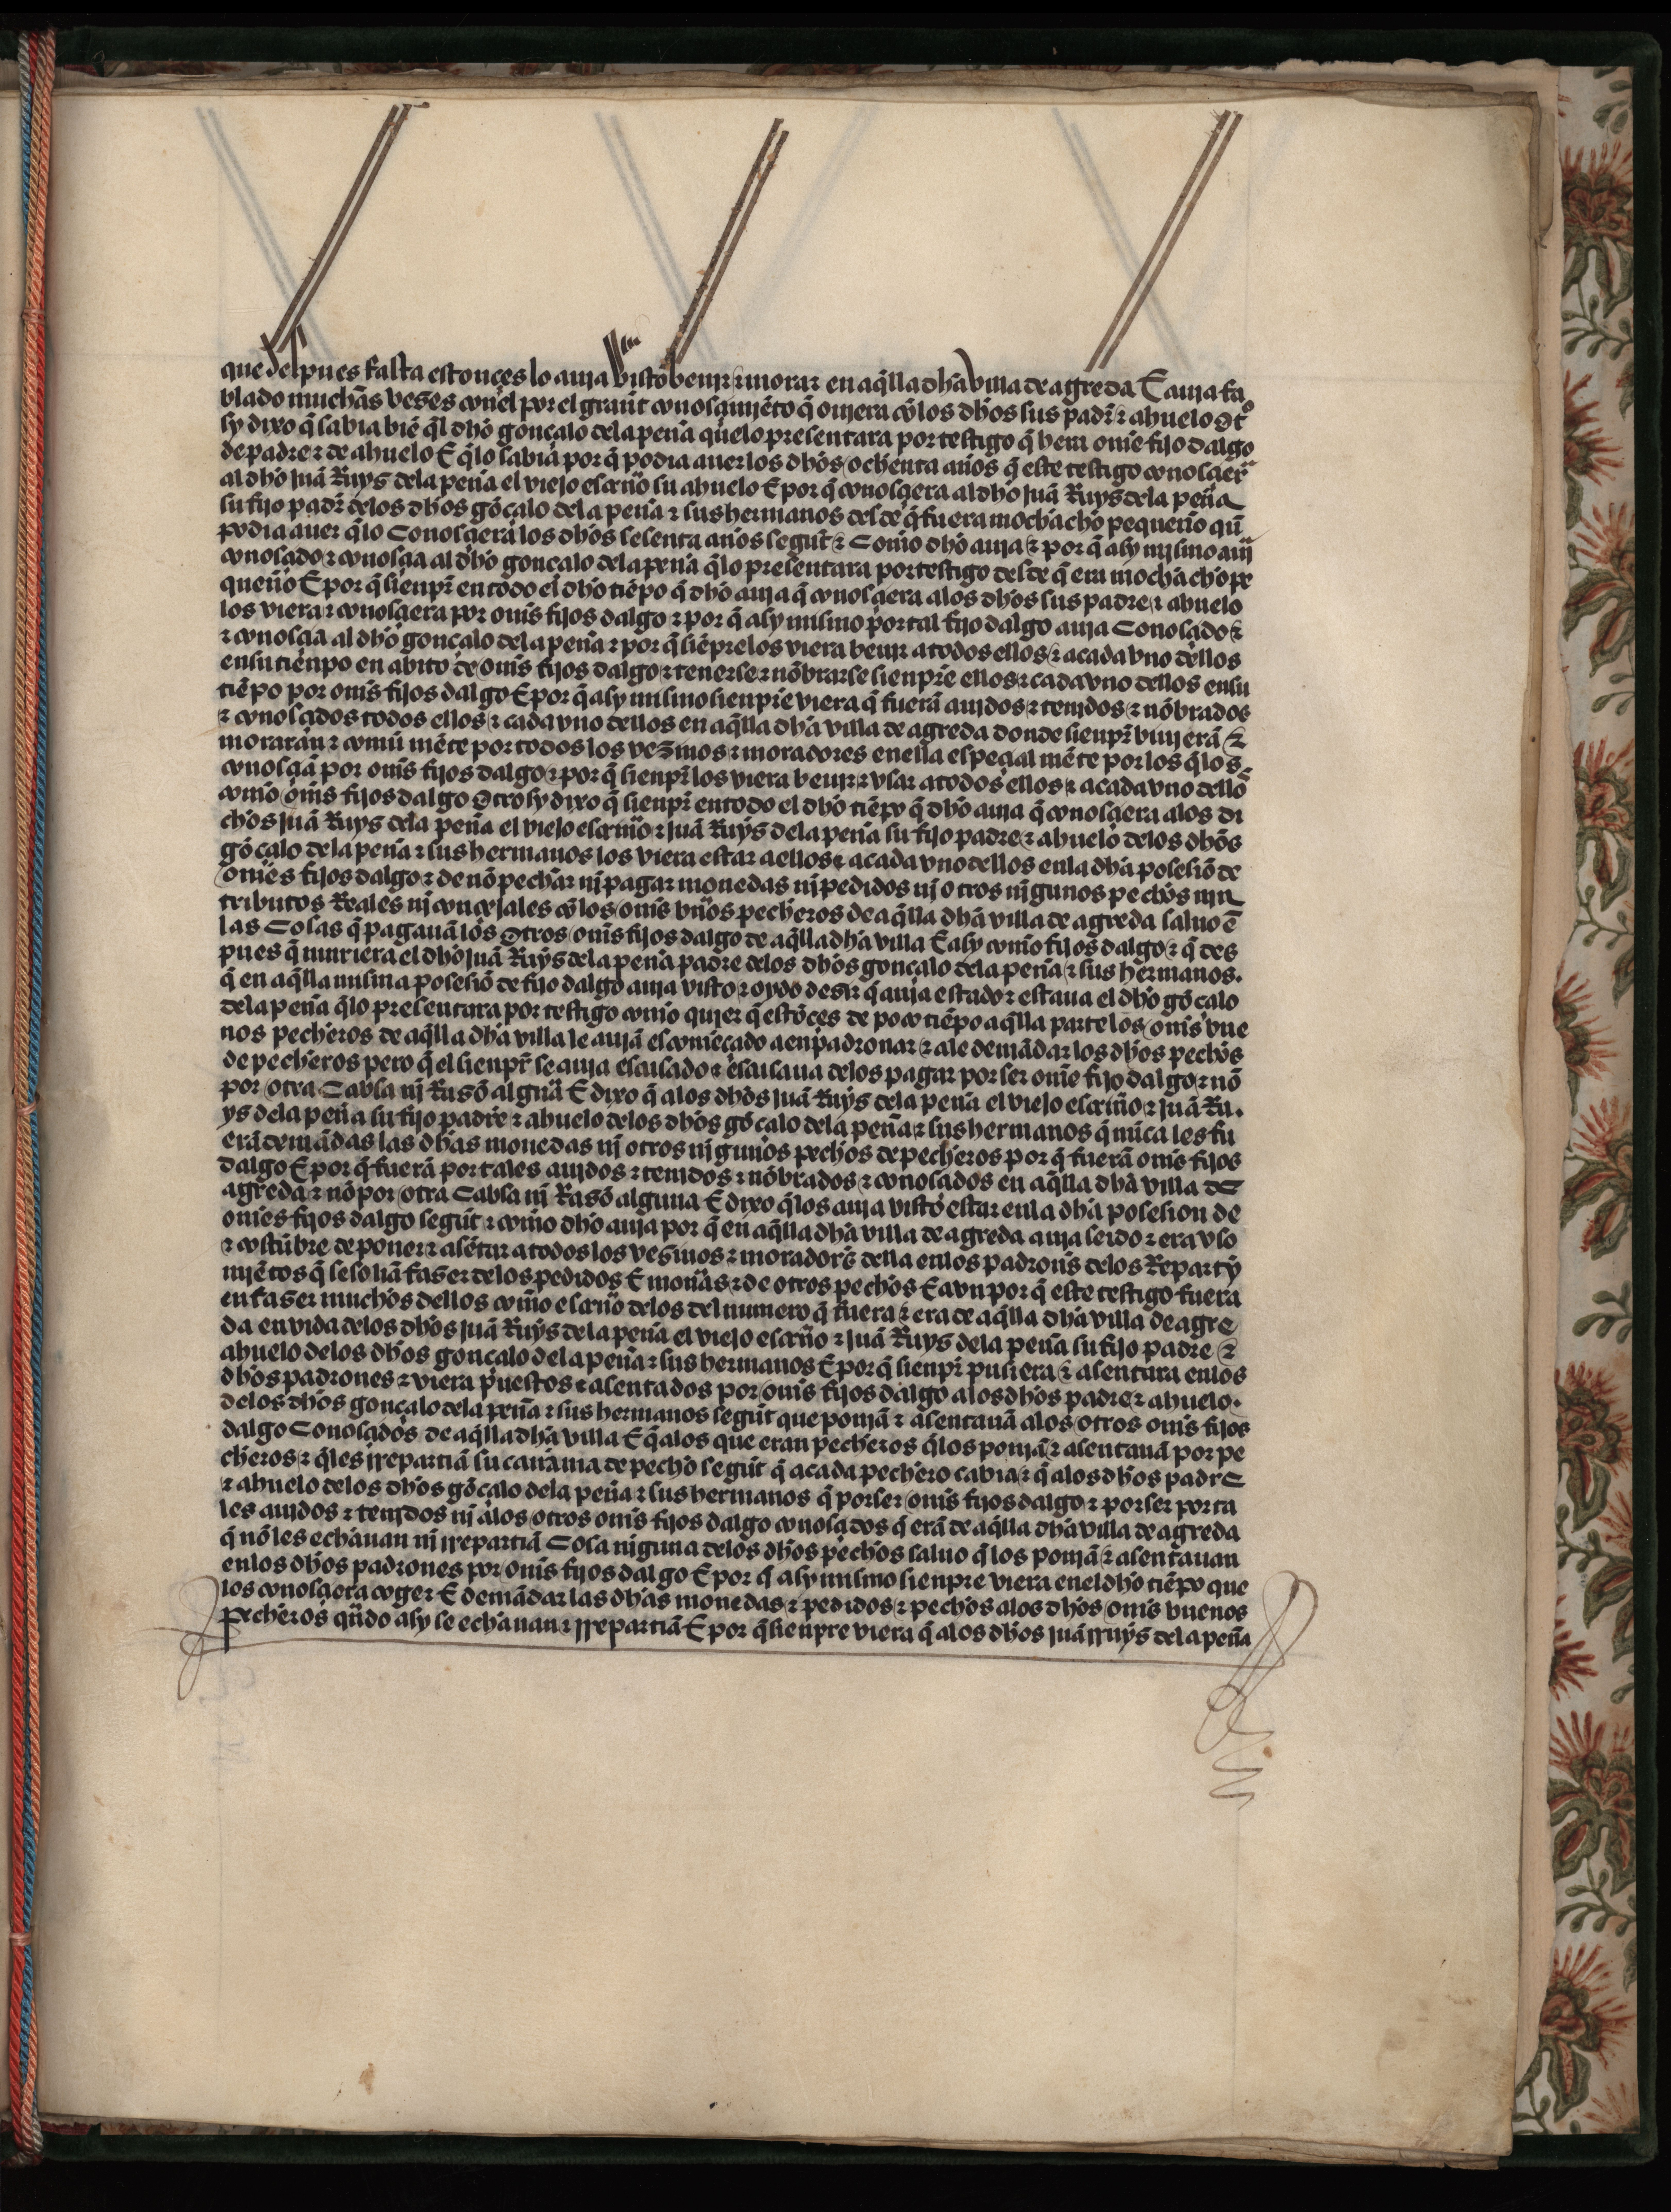 que despues fasta estonçes lo auja visto beujr ⁊ morar en aq̃lla dha villa de agreda E auja fa
blado muchas veses conel por el grañt conosçimjẽto q̃ oujera cõ los dhos sus padr̃ ⁊ ahuelo Ot̃º
sy dixo q̃ sabia biẽ q̃l dho gonçalo dela peña quelo presentara por testigo q̃ hera om̃e fijo dalgo
de padre ⁊ de ahuelo E q̃lo sabia por q̃ podia auer los dhos ochenta años q̃ este testigo conosçier̃
al dho juã Ruys dela peña el viejo escriũo su ahuelo E por q̃ conosçiera al dho juã Ruys dela peña
su fijo padr̃ delos dhos gõçalo dela peña ⁊ sus hermanos desde q̃ fuera mochacho pequeño qũ
podia auer q̃lo Conosçiera los dhos sesenta años segut̃ ⁊ Com̃o dho auja ⁊ por q̃ asy mjsmo auj̃
conosçido ⁊ conosçia al dho gonçalo dela peña q̃lo presentara por testigo desde q̃ era mochacho pe
queño E por q̃ sienpr̃ en todo el dho tiẽpo q̃ dho auja q̃ conosçiera alos dhos sus padre ⁊ ahuelo
los viera ⁊ conosçiera por om̃s fijos dalgo ⁊ por q̃ asy mjsmo por tal fijo dalgo auja Conosçido ⁊
⁊ conosçia al dho gonçalo dela peña ⁊ por q̃ siẽpre los viera beujr a todos ellos ⁊ acada vno dellos
ensu tiẽnpo en abito de om̃s fijos dalgo ⁊ tenerse ⁊ nõbrarse sienpre ellos ⁊ cada vno dellos ensu
tiẽpo por om̃s fijos dalgo E por q̃ asy mjsmo sienpre viera q̃ fuerã aujdos ⁊ tenjdos ⁊ nõbrados
⁊ conosçidos todos ellos ⁊ cada vno dellos en aq̃lla dha villa de agreda donde sienpr̃ biujerã ⁊
moraran ⁊ comũ mẽte por todos los vezinos ⁊ moradores enella espeçial mẽte por los q̃ los
conosçiã por om̃s fijos dalgo ⁊ por q̃ sienpr̃ los viera beujr ⁊ vsar atodos ellos ⁊ acada vno dellõ
com̃o om̃s fijos dalgo Otrosy dixo q̃ sienpr̃ entodo el dho tiẽpo q̃ dho auja q̃ conosçiera alos di
chos juã Ruys dela peña el viejo escriũo ⁊ juã Ruys dela peña su fijo padre ⁊ ahuelo delos dhos
gõçalo dela peña ⁊ sus hermanos los viera estar aellos ⁊ acada vno dellos enla dha posesiõ de
om̃es fijos dalgo ⁊ de nõ pechar nj pagar monedas nj pedidos nj otros njgunos pechos njn
tributos Reales nj conçejales cõ los om̃s bũos pecheros de aq̃lla dha villa de agreda saluo ẽ
las Cosas q̃ pagauã los Otros om̃s fijos dalgo de aq̃lla dha villa E asy com̃o fijos dalgo ⁊ q̃ des
pues q̃ muriera el dho juã Ruys dela peña padre delos dhos gonçalo dela peña ⁊ sus hermanos.
q̃ en aq̃lla mjsma posesiõ de fijo dalgo auja visto ⁊ oydo desir q̃ auja estado ⁊ estaua el dho gõçalo
dela peña q̃lo presentara por testigo com̃o qujer q̃ estõçes de poco tiẽpo aq̃lla parte los om̃s bue
nos pecheros de aq̃lla dha villa le aujã escomẽçado aenpadronar ⁊ ale demãdar los dhos pechos
de pecheros pero q̃ el sienpr̃ se auja escusado ⁊ escusaua delos pagar por ser om̃e fijo dalgo ⁊ nõ
por otra Cabsa nj Rasõ algũa E dixo q̃ alos dhos juã Ruys dela peña el viejo escriũo ⁊ juã Ru.
ys dela peña su fijo padre ⁊ ahuelo delos dhos gõçalo dela peña ⁊ sus hermanos q̃ nũca les fu
erã demãdas las dhas monedas nj otros njgunos pechos de pecheros por q̃ fuerã om̃s fijos
dalgo E por q̃ fuerã por tales aujdos ⁊ tenjdos ⁊ nõbrados ⁊ conosçidos en aq̃lla dha villa de
agreda ⁊ nõ por otra Cabsa nj Rasõ alguna E dixo q̃los auja visto estar enla dha posesion de
om̃es fijos dalgo segut̃ ⁊ com̃o dho auja por q̃ en aq̃lla dha villa de agreda auja seido ⁊ era vso
⁊ costũbre de poner ⁊ asẽtar a todos los vesinos ⁊ morador̃s della enlos padrons̃ delos Reparty
mjẽtos q̃ se soliã faser delos pedidos E mon̄as ⁊ de otros pechos E avn por q̃ este testigo fuera
en faser muchos dellos com̃o escriũo delos del numero q̃ fuera ⁊ era de aq̃lla dha villa de agre
da en vida delos dhos juã Ruys dela peña el viejo escriũo ⁊ juã Ruys dela peña su fijo padre ⁊
ahuelo delos dhos gonçalo dela peña ⁊ sus hermanos E por q̃ sienpr̃ pusiera ⁊ asentara enlos
dhos padrones ⁊ viera puestos ⁊ asentados por om̃s fijos dalgo alos dhos padre ⁊ ahuelo.
delos dhos gonçalo dela peña ⁊ sus hermanos segut̃ que ponjã ⁊ asentauã alos otros om̃s fijos
dalgo Conosçidos de aq̃lla dha villa E q̃ alos que eran pecheros q̃los ponjã ⁊ asentauã por pe
cheros ⁊ q̃les rrepartiã su cañama de pecho segut̃ q̃ acada pechero cabia ⁊ q̃ alos dhos padre
⁊ ahuelo delos dhos gõçalo dela peña ⁊ sus hermanos q̃ por ser om̃s fijos dalgo ⁊ por ser por ta
les aujdos ⁊ tenjdos nj alos otros om̃s fijos dalgo conosçidos q̃ erã de aq̃lla dha villa de agreda
q̃ nõ les echauan nj rrepartiã Cosa niguna delos dhos pechos saluo q̃ los ponjã ⁊ asentauan
enlos dhos padrones por om̃s fijos dalgo E por q̃ asy mjsmo sienpre viera enel dho tiẽpo que
los conosçiera coger E demãdar las dhas monedas ⁊ pedidos ⁊ pechos alos dhos om̃s buenos
pecheros qũdo asy se echauan ⁊ rrepartiã E por q̃ sienpre viera q̃ alos dhos juã rruys dela peña